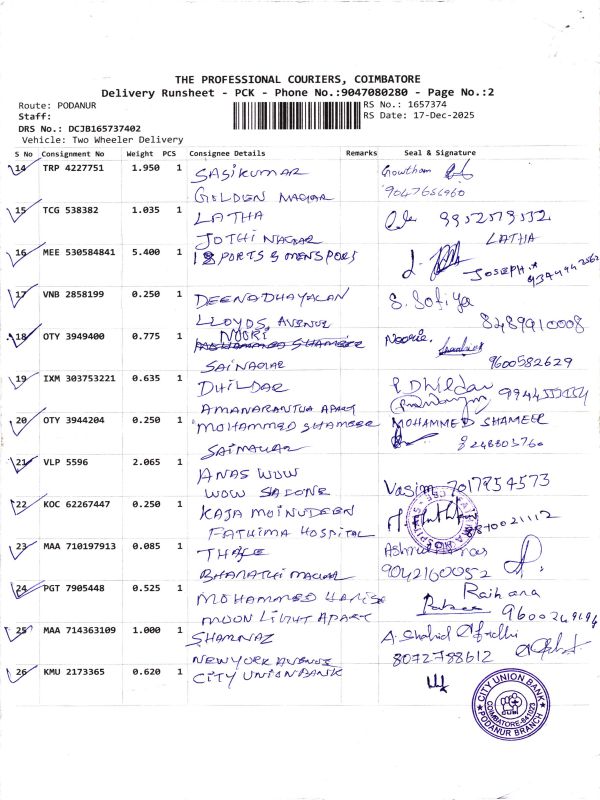 THE PROFESSIONAL COURIERS, COIMBATORE
Delivery Runsheet - PCK - Phone No.:9047080280 - Page No.:2
Route: PODANUR
RS No.: 1657374
Staff:
RS Date: 17-Dec-2025
DRS No.: DCJB165737402
Vehicle: Two Wheeler Delivery
S No Consignment No Weight PCS Consignee Details Remarks Seal & Signature
14 TRP 4227751 1.950 1 SASIKUMAR Gowtham
GOLDEN NAGAR 9047656960
15 TCG 538382 1.035 1 LATHA
JOTHI NAGAR LATHA
16 MEE 530584841 5.400 1 SPORTS & MENSPORT JOSEPH
17 VNB 2858199 0.250 1 DEENADHAYALAN S. Sofiya
LLOYDS AVENUE 8489910008
18 OTY 3949400 0.775 1 NOORI Noorie
MOHAMMED SHAMEER
SAINAGAR 9600582629
19 IXM 303753221 0.635 1 DHILDAR P Dhildar
AMANARANTHA APART
20 OTY 3944204 0.250 1 MOHAMMED SHAMEER MOHAMMED SHAMEER
SAINAGAR 8248803760
21 VLP 5596 2.065 1 ANAS WOW Vasim 7017954573
WOW SALONE
22 KOC 62267447 0.250 1 KAJA MOINUDEEN
FATHIMA HOSPITAL
23 MAA 710197913 0.085 1
BHARATHI NAGAR 9042160052
24 PGT 7905448 0.525 1 MOHAMMED HARISH Raihana
MOON LIGHT APART
25 MAA 714363109 1.000 1 SHARNAZ A. Shahid Afridhi
NEWYORK AVENUE 8072788612
26 KMU 2173365 0.620 1 CITY UNION BANK
CITY UNION BANK
COIMBATORE-641023
CUB
PODANUR BRANCH